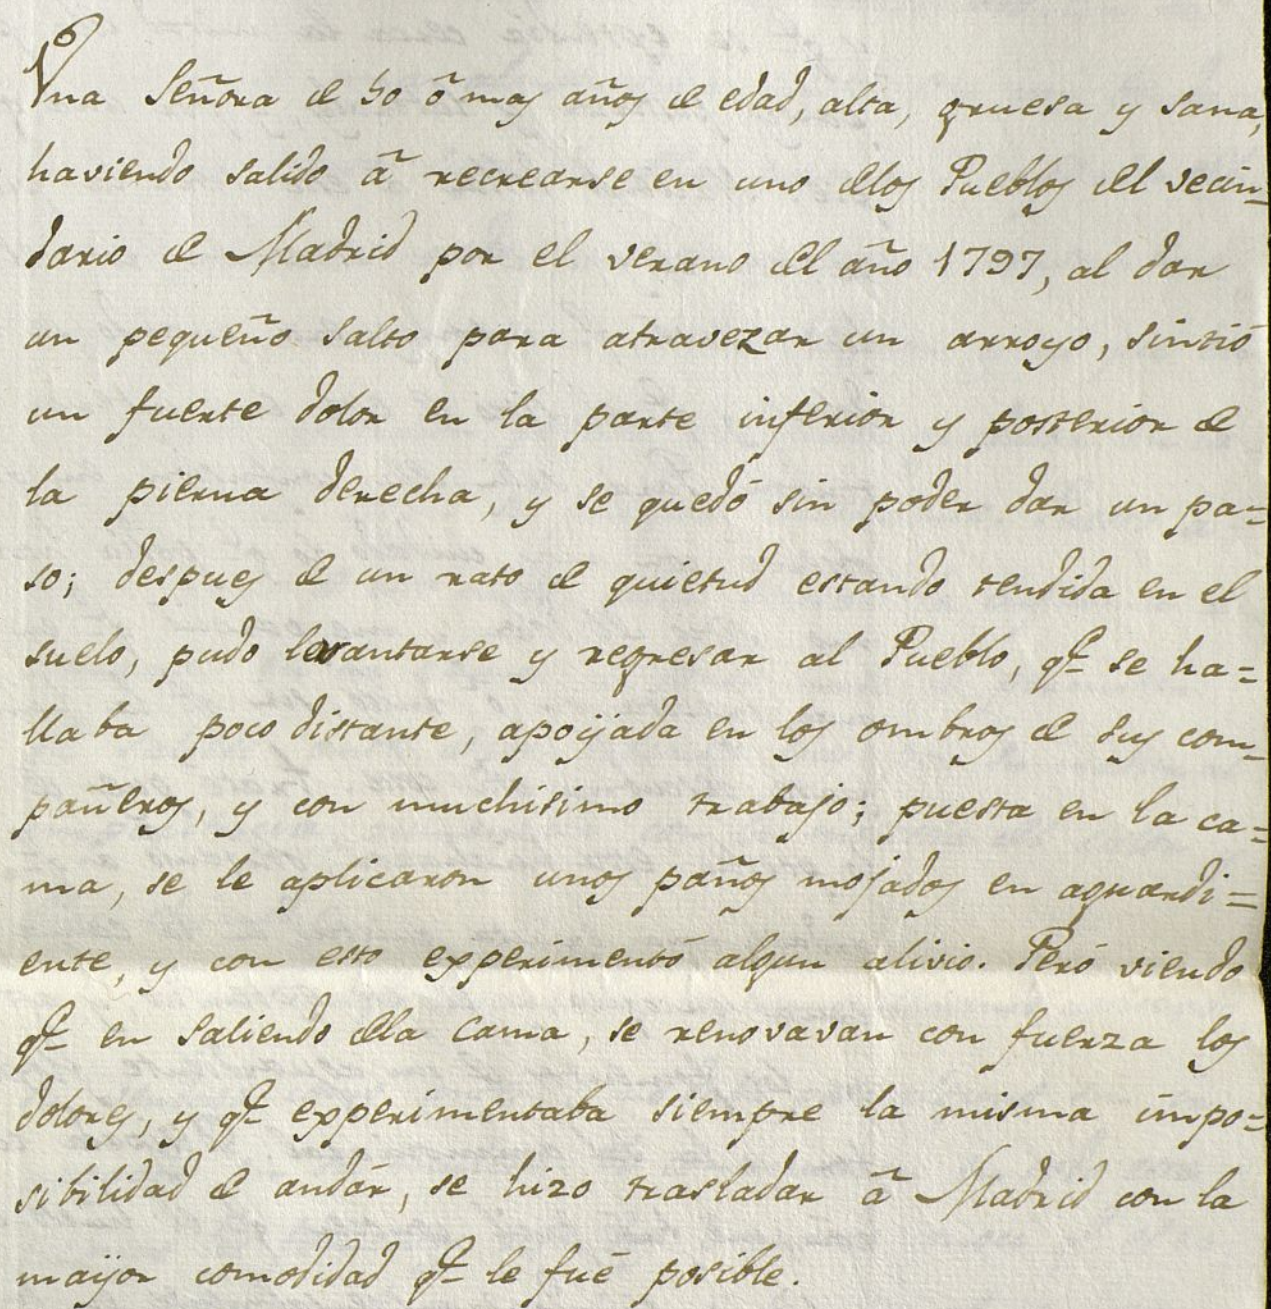 Una Señora de 50 ô mas años de edad, alta, gruesa y sana,
haviendo salido â recrearse en uno delos Pueblos del vecin=
dario de Madrid por el verano del año 1797, al dar
un pequeño salto para atravezar un arroyo, sintió
un fuerte dolor en la parte inferior y posterior de
la pierna derecha, y se quedó sin poder dar un pa=
so; despues de un rato de quietud estando tendida en el
suelo, pudo levantarse y regresar al Pueblo, qe se ha=
llaba poco distante, apoyada en los ombros de sus com=
pañeros, y con muchisimo trabajo; puesta en la ca=
ma, se le aplicaron unos paños mojados en aguardi=
ente, y con esto experimentó algun alivio. Peró viendo
qe en saliendo dela cama, se renovavan con fuerza los
dolores, y qe experimentaba siempre la misma impo=
sibilidad de andár, se hizo trasladar â Madrid con la
mayor comodidad qe le fué posible.